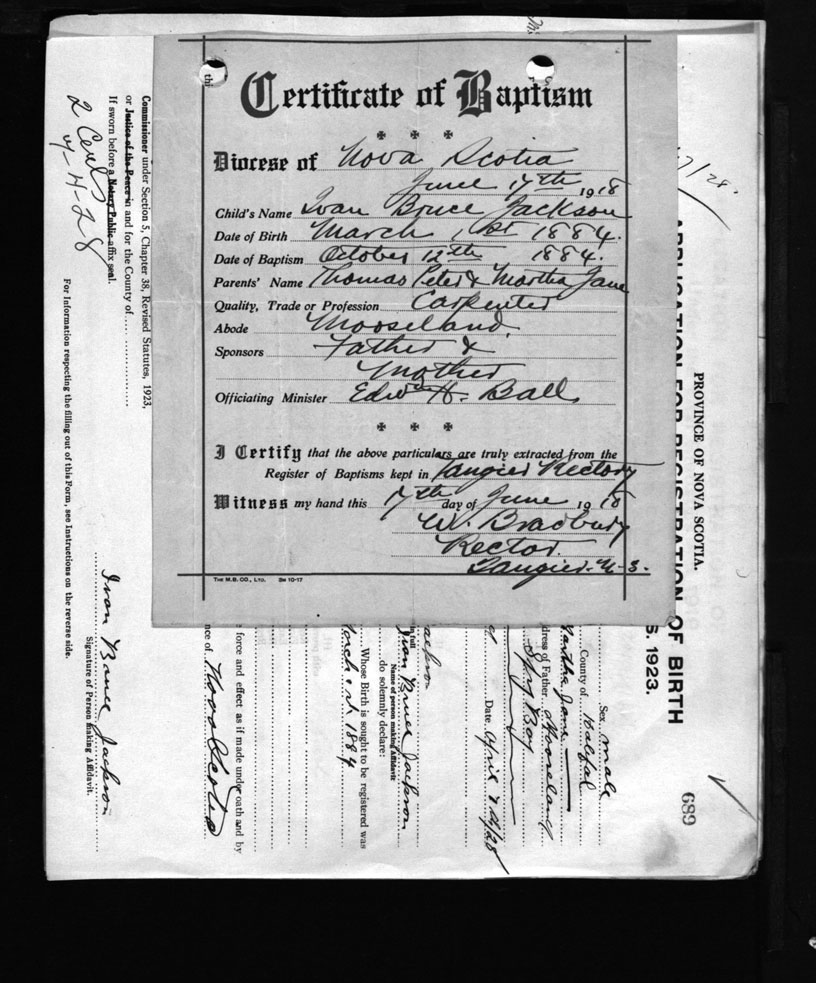 Certificate of Baptism
Diocese of Nova Scotia
June 17th 1918
Child's Name Ivan Bruce Jackson
Date of Birth March 1st 1884.
Date of Baptism October 12th 1884.
Parents' Name Thomas Peter & Martha Jane
Quality, Trade or Profession Carpenter
Abode Mooseland
Sponsors Father &
Mother
Officiating Minister Edwd H. Ball
I Certify that the above particulars are truly extracted from the
Register of Baptisms kept in Tangier Rectory
Witness my hand this 17th day of June 1918
W. Bradbury
Rector.
Tangier. N-S.
THE M.B. CO., LTD. 5M 10-17
PROVINCE OF NOVA SCOTIA.
APPLICATION FOR REGISTRATION OF BIRTH
S, 1923.
689
Sex male
County of Halifax
Martha Jane
dress of Father Mooseland
Spry Bay
Date April
Jackson
in full Ivan Bruce Jackson
Name of person making Affidavit
do solemnly declare:
Whose Birth is sought to be registered was
March 1st 1884
force and effect as if made under oath and by
nce of Nova Scotia
Commissioner under Section 5, Chapter 38, Revised Statutes, 1923,
or Justice of the Peace in and for the County of
If sworn before a Notary Public affix seal.
4-4-28
Ivan Bruce Jackson
Signature of Person making Affidavit.
For Information respecting the filling out of this Form, see Instructions on the reverse side.